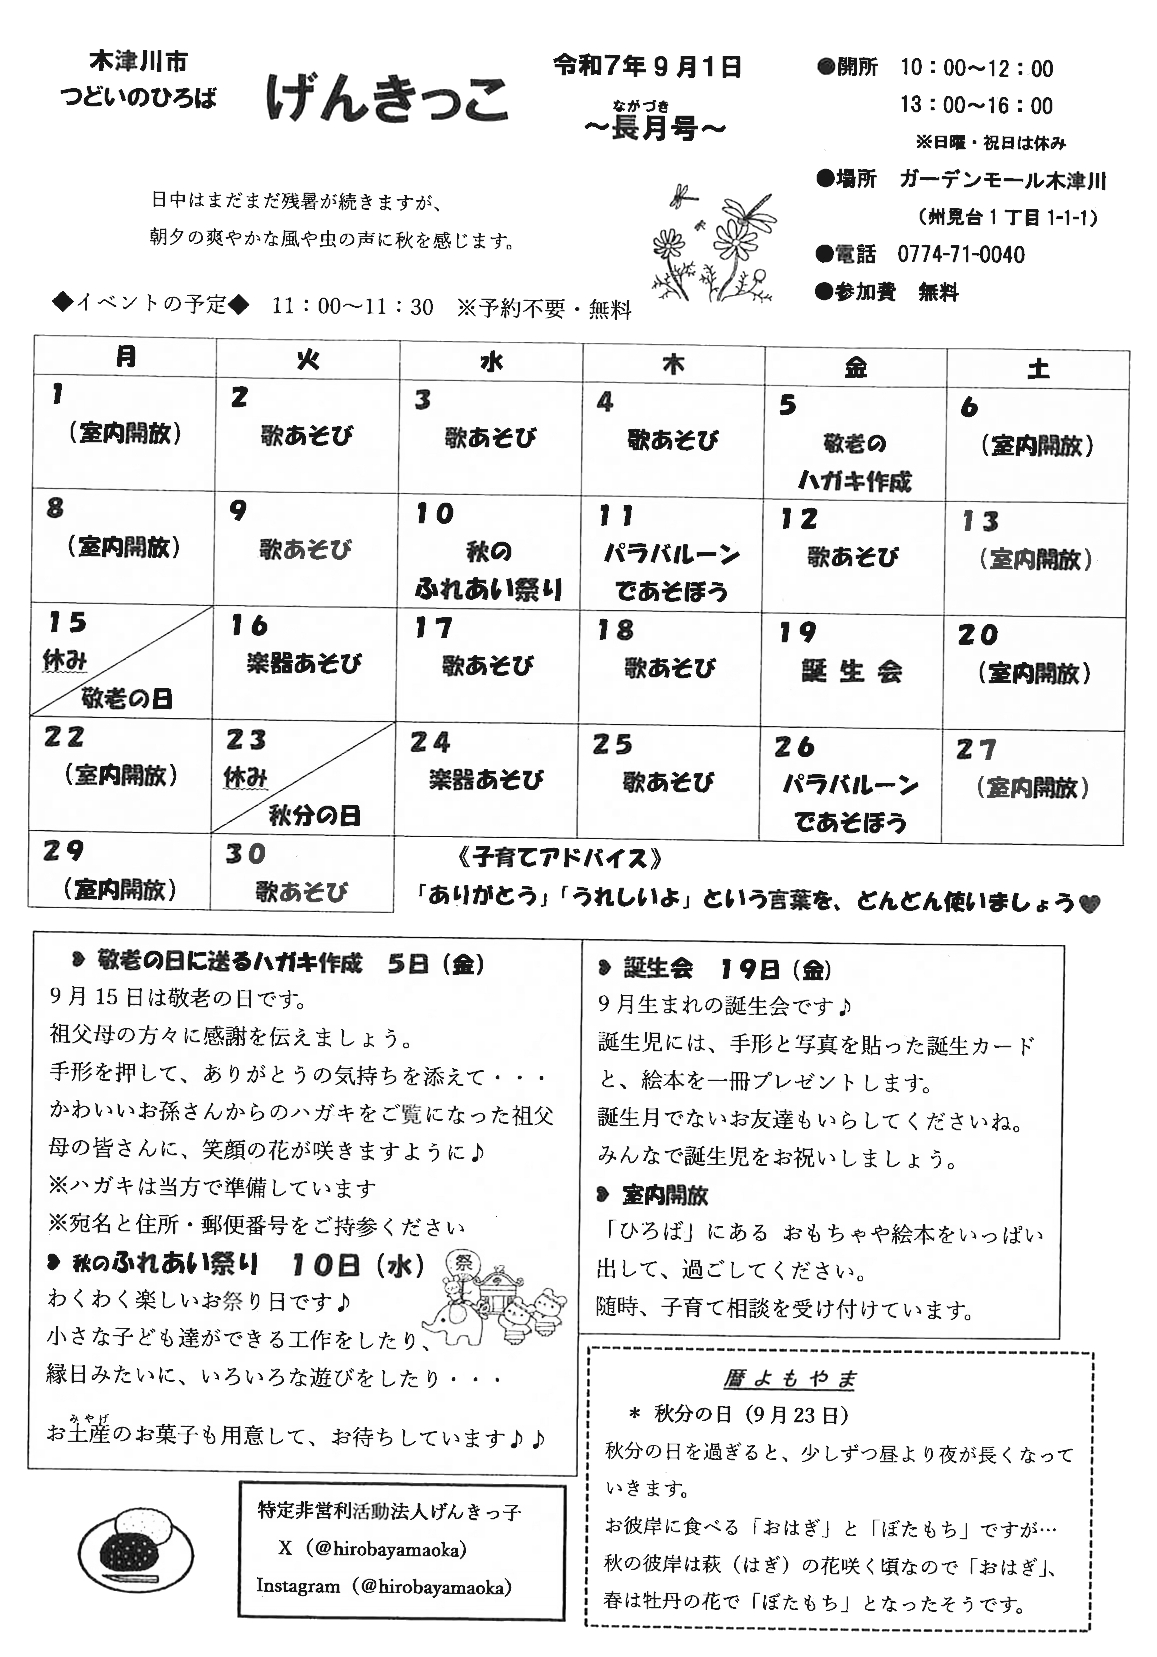 木津川市
つどいのひろば
げんきっこ
令和7年9月1日
ながづき
～長月号～
●開所 10：00～12：00
13：00～16：00
※日曜・祝日は休み
●場所 ガーデンモール木津川
（州見台1丁目1-1-1）
●電話 0774-71-0040
●参加費 無料
日中はまだまだ残暑が続きますが、
朝夕の爽やかな風や虫の声に秋を感じます。
◆イベントの予定◆ 11：00～11：30 ※予約不要・無料
月 火 水 木 金 土
1 2 3 4 5 6
（室内開放） 歌あそび 歌あそび 歌あそび 敬老の （室内開放）
ハガキ作成
8 9 10 11 12 13
（室内開放） 歌あそび 秋の パラバルーン 歌あそび （室内開放）
ふれあい祭り であそぼう
15 16 17 18 19 20
休み 楽器あそび 歌あそび 歌あそび 誕生会 （室内開放）
敬老の日
22 23 24 25 26 27
（室内開放） 休み 楽器あそび 歌あそび パラバルーン （室内開放）
秋分の日 であそぼう
29 30
（室内開放） 歌あそび
《子育てアドバイス》
「ありがとう」「うれしいよ」という言葉を、どんどん使いましょう♥
❥ 敬老の日に送るハガキ作成 5日（金）
9月15日は敬老の日です。
祖父母の方々に感謝を伝えましょう。
手形を押して、ありがとうの気持ちを添えて・・・
かわいいお孫さんからのハガキをご覧になった祖父
母の皆さんに、笑顔の花が咲きますように♪
※ハガキは当方で準備しています
※宛名と住所・郵便番号をご持参ください
❥ 秋のふれあい祭り 10日（水）
祭
わくわく楽しいお祭り日です♪
小さな子ども達ができる工作をしたり、
縁日みたいに、いろいろな遊びをしたり・・・
みやげ
お土産のお菓子も用意して、お待ちしています♪♪
❥ 誕生会 19日（金）
9月生まれの誕生会です♪
誕生児には、手形と写真を貼った誕生カード
と、絵本を一冊プレゼントします。
誕生月でないお友達もいらしてくださいね。
みんなで誕生児をお祝いしましょう。
❥ 室内開放
「ひろば」にある おもちゃや絵本をいっぱい
出して、過ごしてください。
随時、子育て相談を受け付けています。
暦よもやま
＊ 秋分の日（9月23日）
秋分の日を過ぎると、少しずつ昼より夜が長くなって
いきます。
お彼岸に食べる「おはぎ」と「ぼたもち」ですが…
秋の彼岸は萩（はぎ）の花咲く頃なので「おはぎ」、
春は牡丹の花で「ぼたもち」となったそうです。
特定非営利活動法人げんきっ子
X（@hirobayamaoka）
Instagram（@hirobayamaoka）